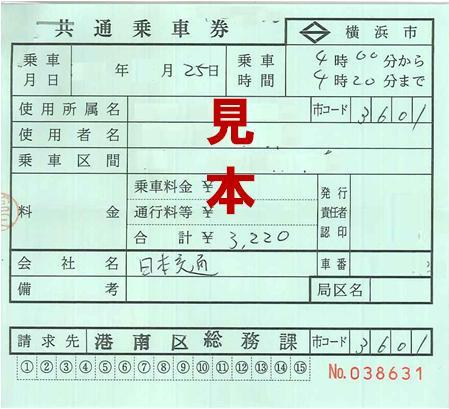 共通乗車券 横浜市
乗車月日 年 月 25日 乗車時間 4時00分から 4時20分まで
使用所属名 市コード 3601
使用者名
乗車区間
料金 乗車料金 ¥ 発行責任者認印
通行料等 ¥
合計 ¥ 3,220
会社名 日本交通 車番
備考 局区名
見本
請求先 港南区総務課 市コード 3601
① ② ③ ④ ⑤ ⑥ ⑦ ⑧ ⑨ ⑩ ⑪ ⑫ ⑬ ⑭ ⑮
No.038631